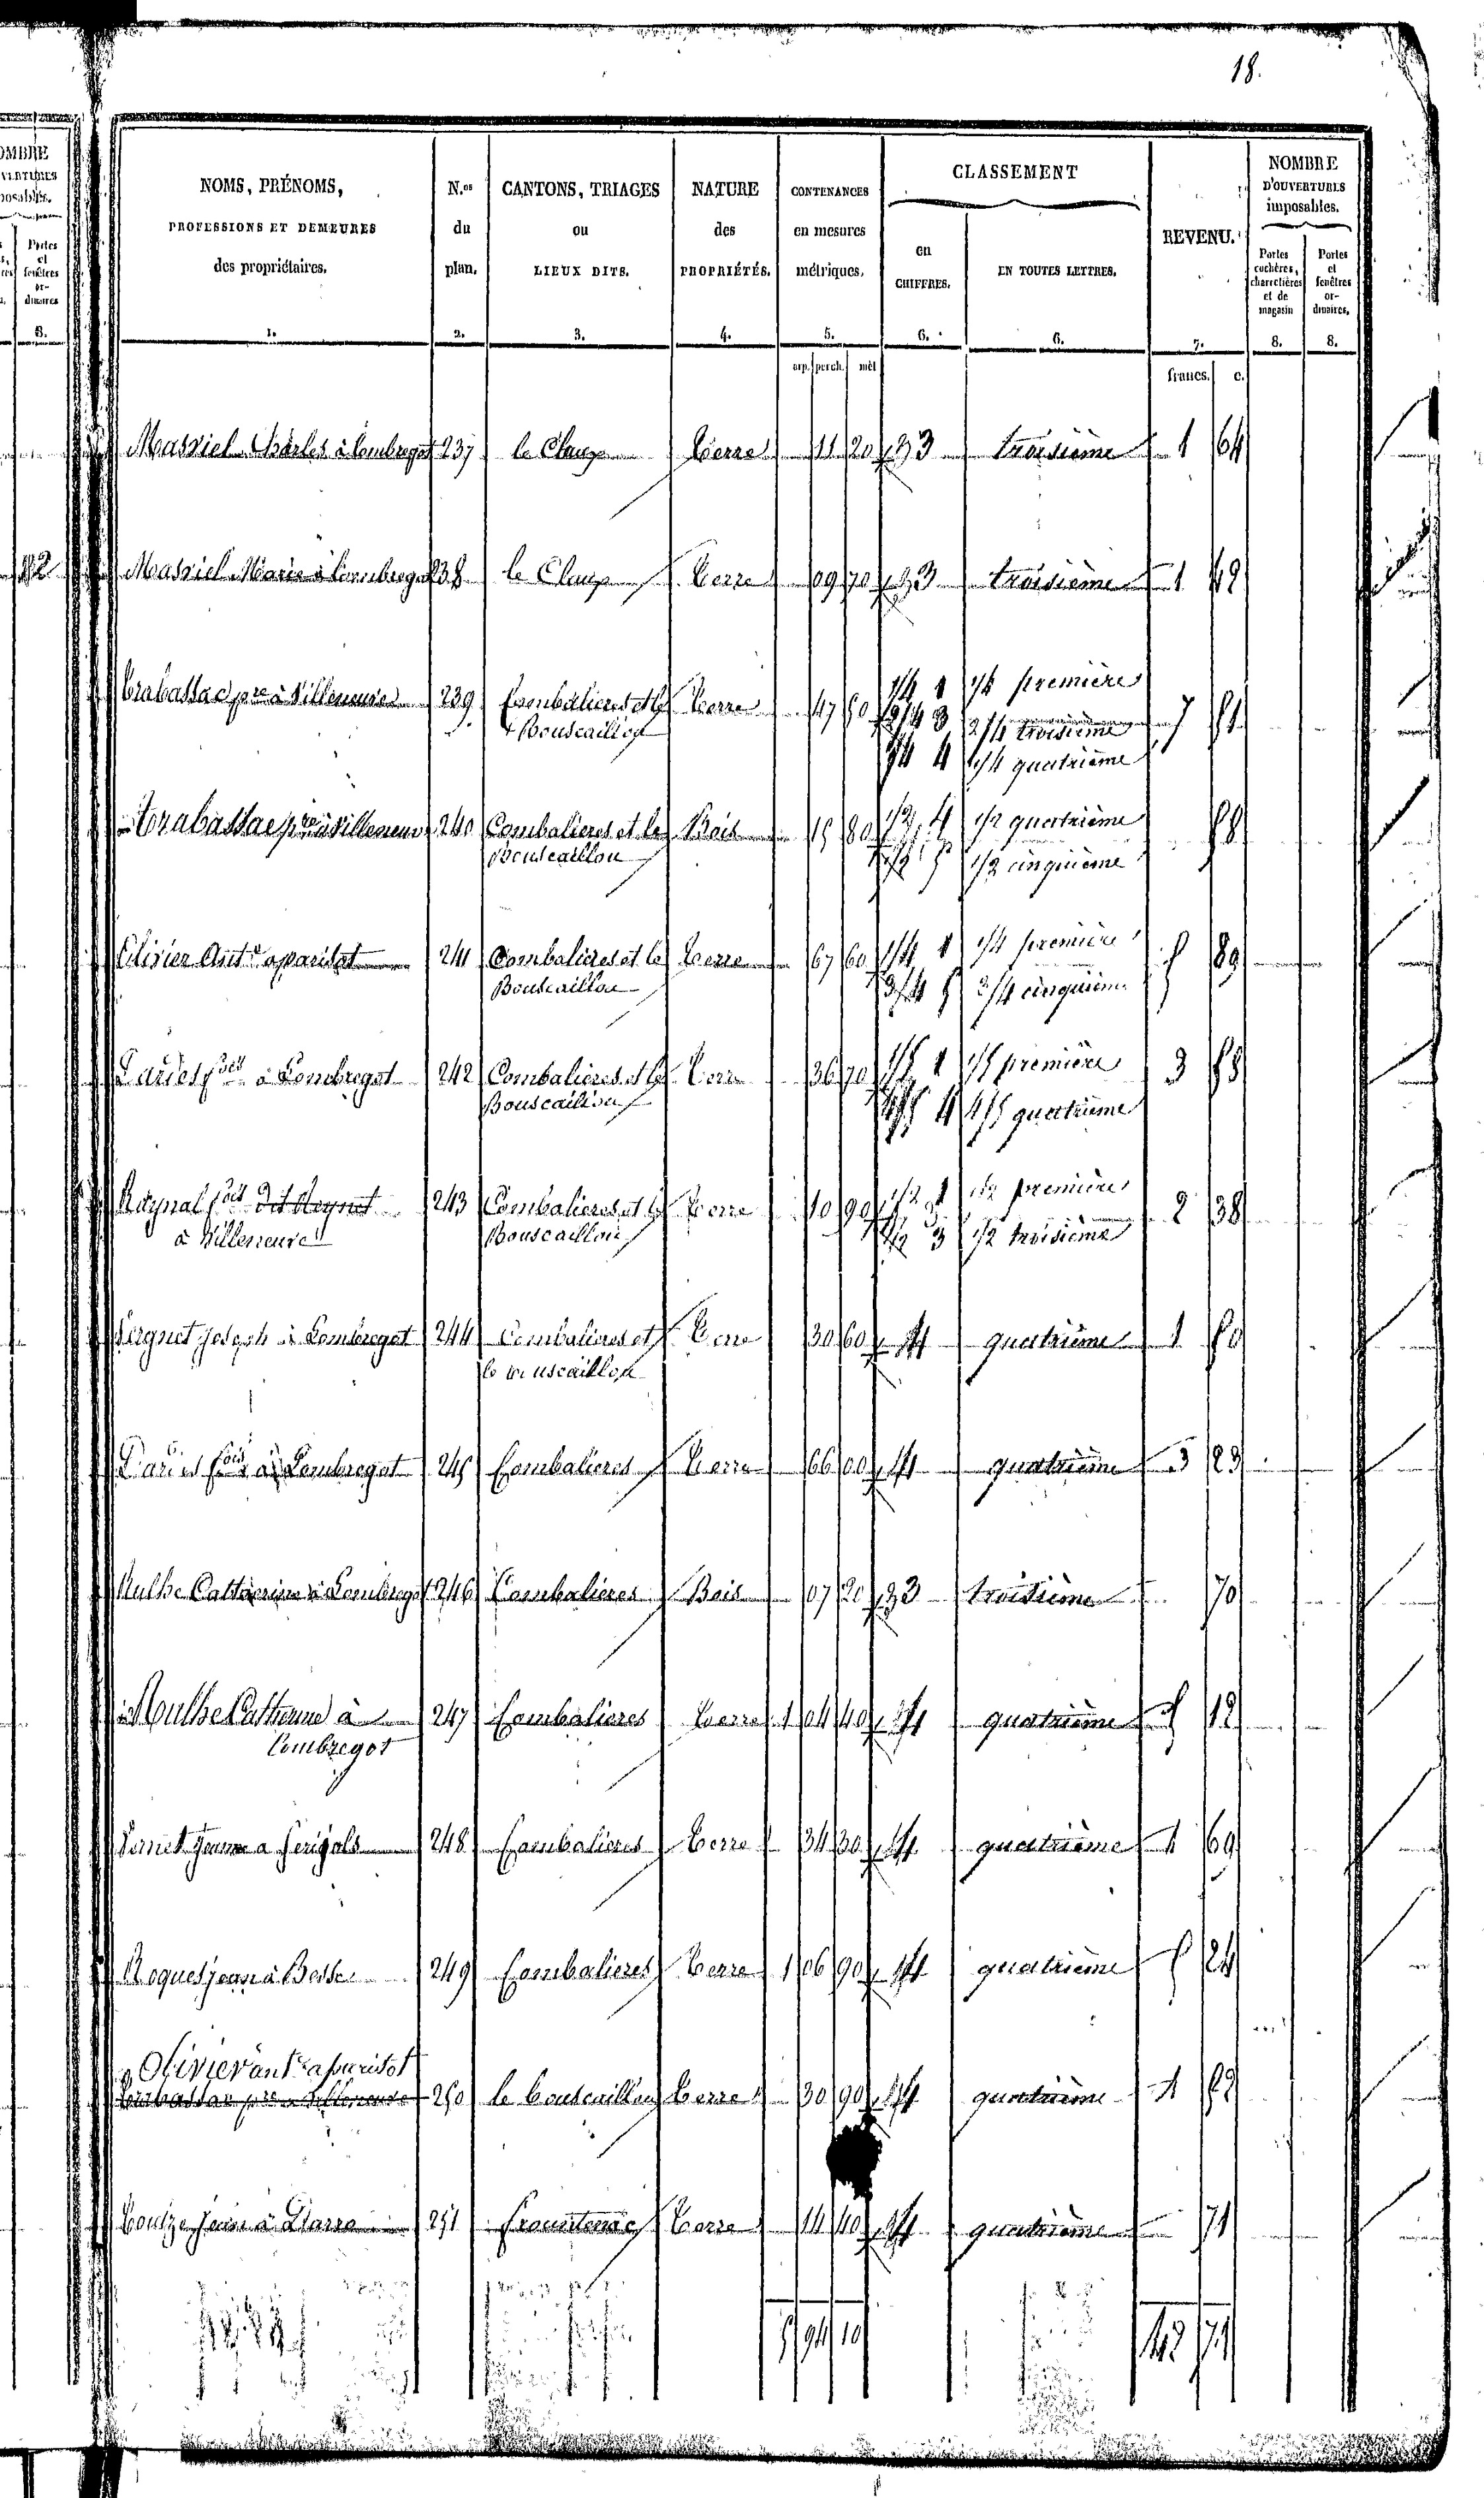 18.
NOMS, PRÉNOMS, PROFESSIONS ET DEMEURES des propriétaires. 1.
N.os du plan. 2.
CANTONS, TRIAGES ou LIEUX DITS. 3.
NATURE des PROPRIÉTÉS. 4.
CONTENANCES en mesures métriques. 5.
CLASSEMENT
en CHIFFRES. 6.
EN TOUTES LETTRES. 6.
REVENU. 7.
NOMBRE D'OUVERTURES imposables.
Portes cochères, charretières et de magasin 8.
Portes et fenêtres ordinaires. 8.
arp. perch. mèt francs. c.
Massiel Charles à Combregot 237 le Clauze Terre 11 20 3 troisième 1 64
Massiel Marie à Combregot 238 le Clauze Terre 09 70 3 troisième 1 42
Trabassac pre à Villeneuve 239 Combalieres et le Terre 47 1/4 1 1/4 première
Bouscaillou 2/4 3 2/4 troisième 7
1/4 4 1/4 quatrième
Trabassac pre à Villeneuve 240 Combalieres et le Bois 15 80 1/2 4 1/2 quatrième
Bouscaillou 1/2 5 1/2 cinquième
Olivier Ant.e a parisot 241 Combalieres et le Terre 67 60 1/4 1 1/4 première 5 89
Bouscaillou 3/4 5 3/4 cinquième
Dariès fois à Combregot 242 Combalieres et le Terre 36 70 1/5 1 1/5 première 3
Bouscaillou 4/5 4 4/5 quatrième
Raynal fois dit Meynet 243 Combalieres et le Terre 10 90 1/2 1 1/2 première 2 38
à Villeneuve Bouscaillou 1/2 3 1/2 troisième
joseph à Combregot 244 Combalieres et Terre 30 60 4 quatrième 1 50
le Bouscaillou
Dariès fois à Combregot 245 Combalieres Terre 66 00 4 quatrième 3 23
Catherine à Combregot 246 Combalieres Bois 07 20 3 troisième 70
Catherine à 247 Combalieres Terre 1 04 40 4 quatrième 5 12
Combregot
248 Combalieres Terre 34 30 4 quatrième 1 69
Roques jean à Besse 249 Combalieres Terre 1 06 90 4 quatrième 5 24
Olivier ant.e a parisot
Trabassac pre à Villeneuve 250 le bouscaillou Terre 30 90 4 quatrième 1 52
jean à 251 Terre 14 40 4 quatrième 71
5 94 10 43 71